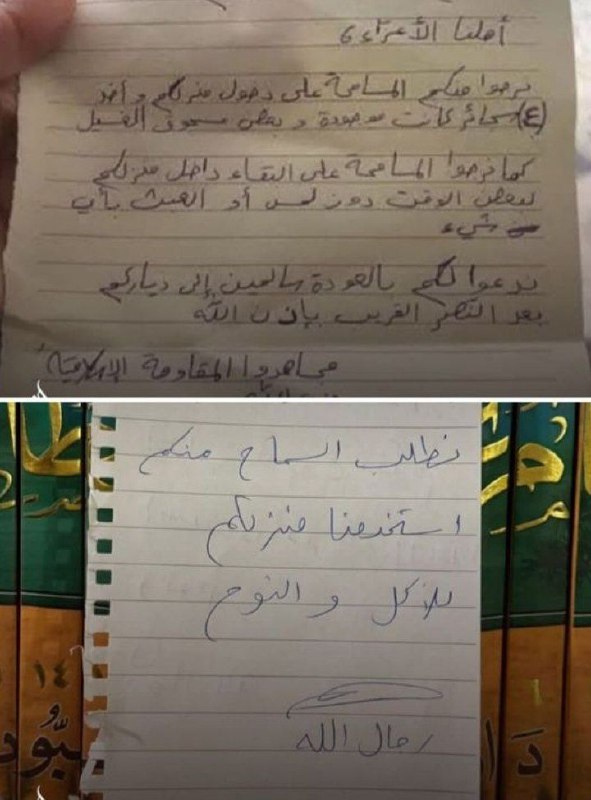 أهلنا الأعزاء،
نرجوا منكم المسامحة على دخول منزلكم وأخذ
(٤) سجائر كانت موجودة وبعض مسحوق الغسيل
كما نرجوا المسامحة على البقاء داخل منزلكم
لبعض الوقت دون لمس أو العبث بأي
شيء
ندعوا لكم بالعودة سالمين إلى دياركم
بعد النصر القريب بإذن الله
مجاهدوا المقاومة الإسلامية
نطلب السماح منكم
استخدمنا منزلكم
للأكل و النوم
رجال الله
١٤